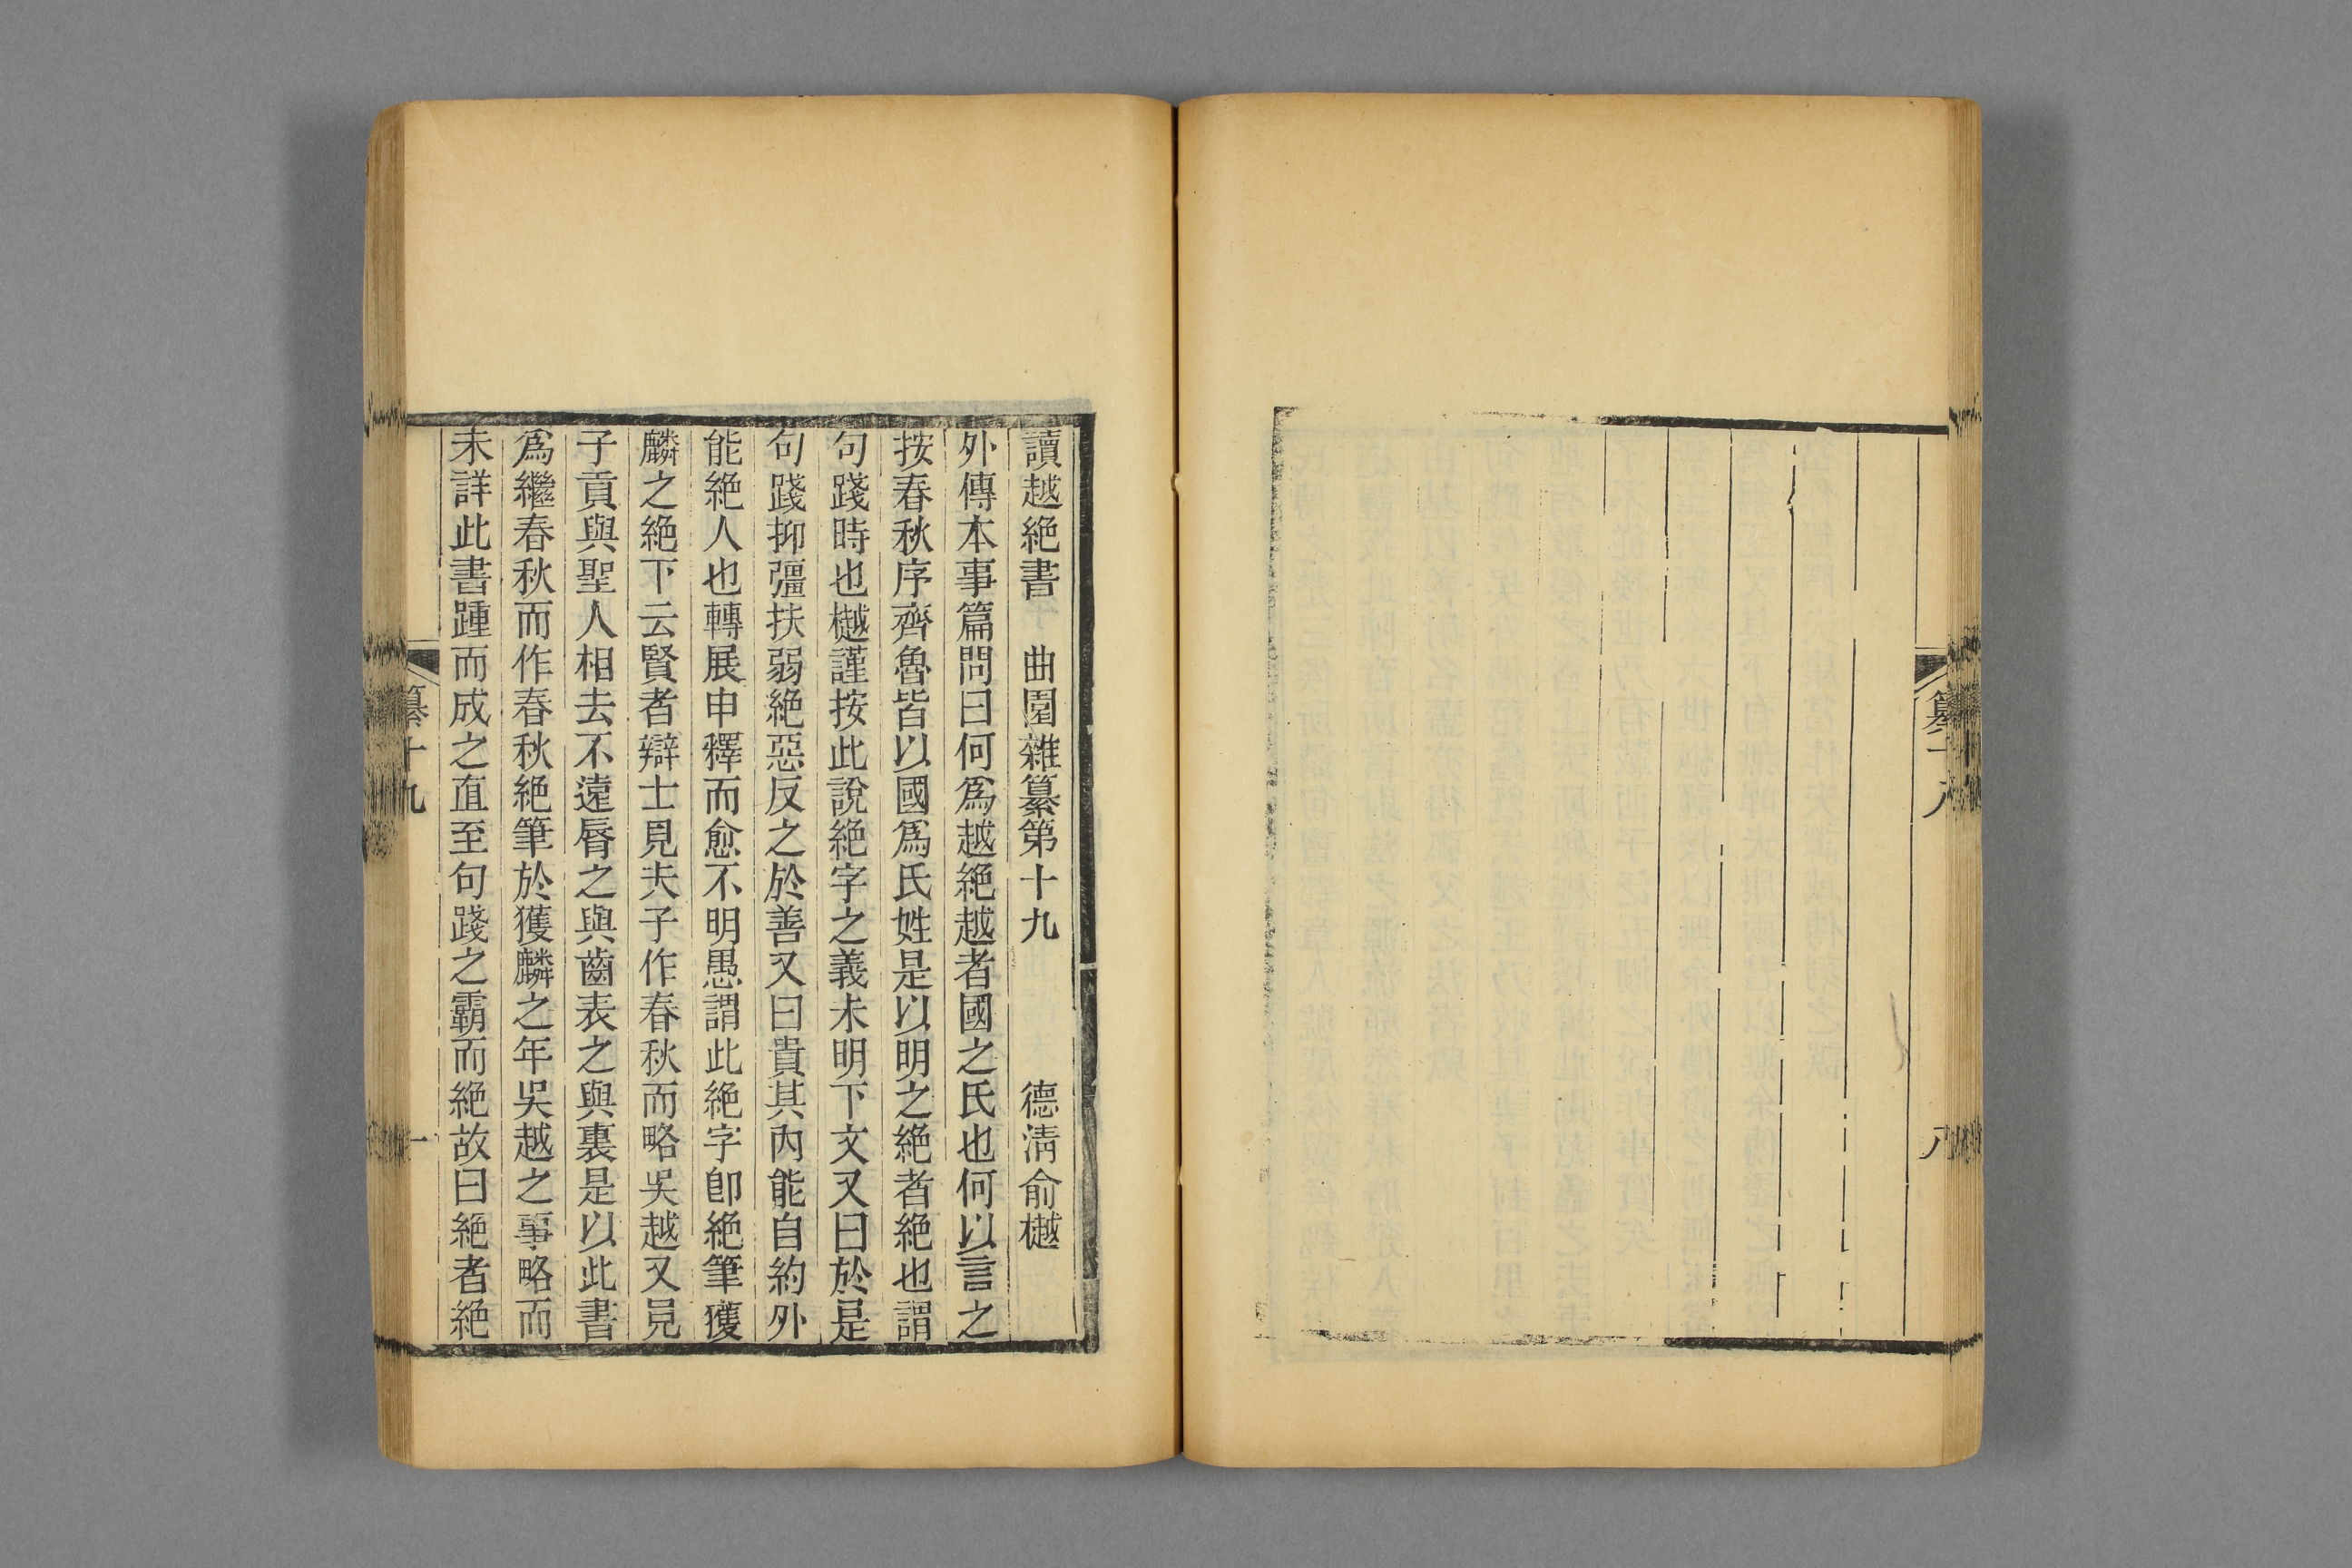 纂十八
八
讀越絕書　曲園雜纂第十九　　　德淸俞樾
外傳本事篇問曰何爲越絕越者國之氏也何以言之
按春秋序齊魯皆以國爲氏姓是以明之絕者絕也謂
句踐時也樾謹按此說絕字之義未明下文又曰於是
句踐抑彊扶弱絕惡反之於善又曰貴其內能自約外
能絕人也轉展申釋而愈不明愚謂此絕字卽絕筆獲
麟之絕下云賢者辯士見夫子作春秋而略吳越又見
子貢與聖人相去不遠脣之與齒表之與裏是以此書
爲繼春秋而作春秋絕筆於獲麟之年吳越之事略而
未詳此書踵而成之直至句踐之霸而絕故曰絕者絕
纂十九
一